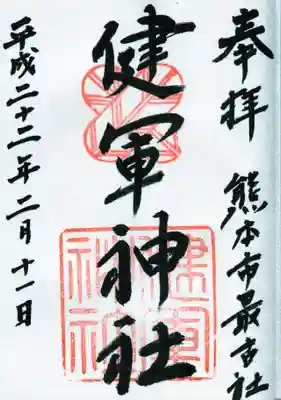 奉拝
熊本市最古社
健軍神社
平成二十二年二月十一日